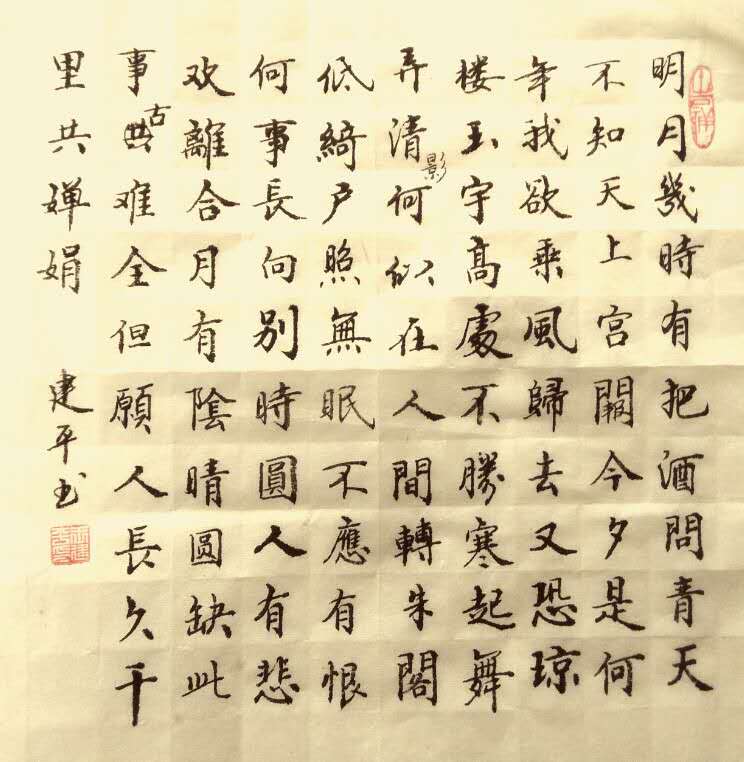 明月幾時有把酒問青天
不知天上宫闕今夕是何
年我欲乘風歸去又恐琼
楼玉宇高處不勝寒起舞
弄清影何似在人間轉朱閣
低綺户照無眠不應有恨
何事長向别時圓人有悲
欢離合月有陰晴圆缺此
事古难全但願人長久千
里共婵娟
建平书